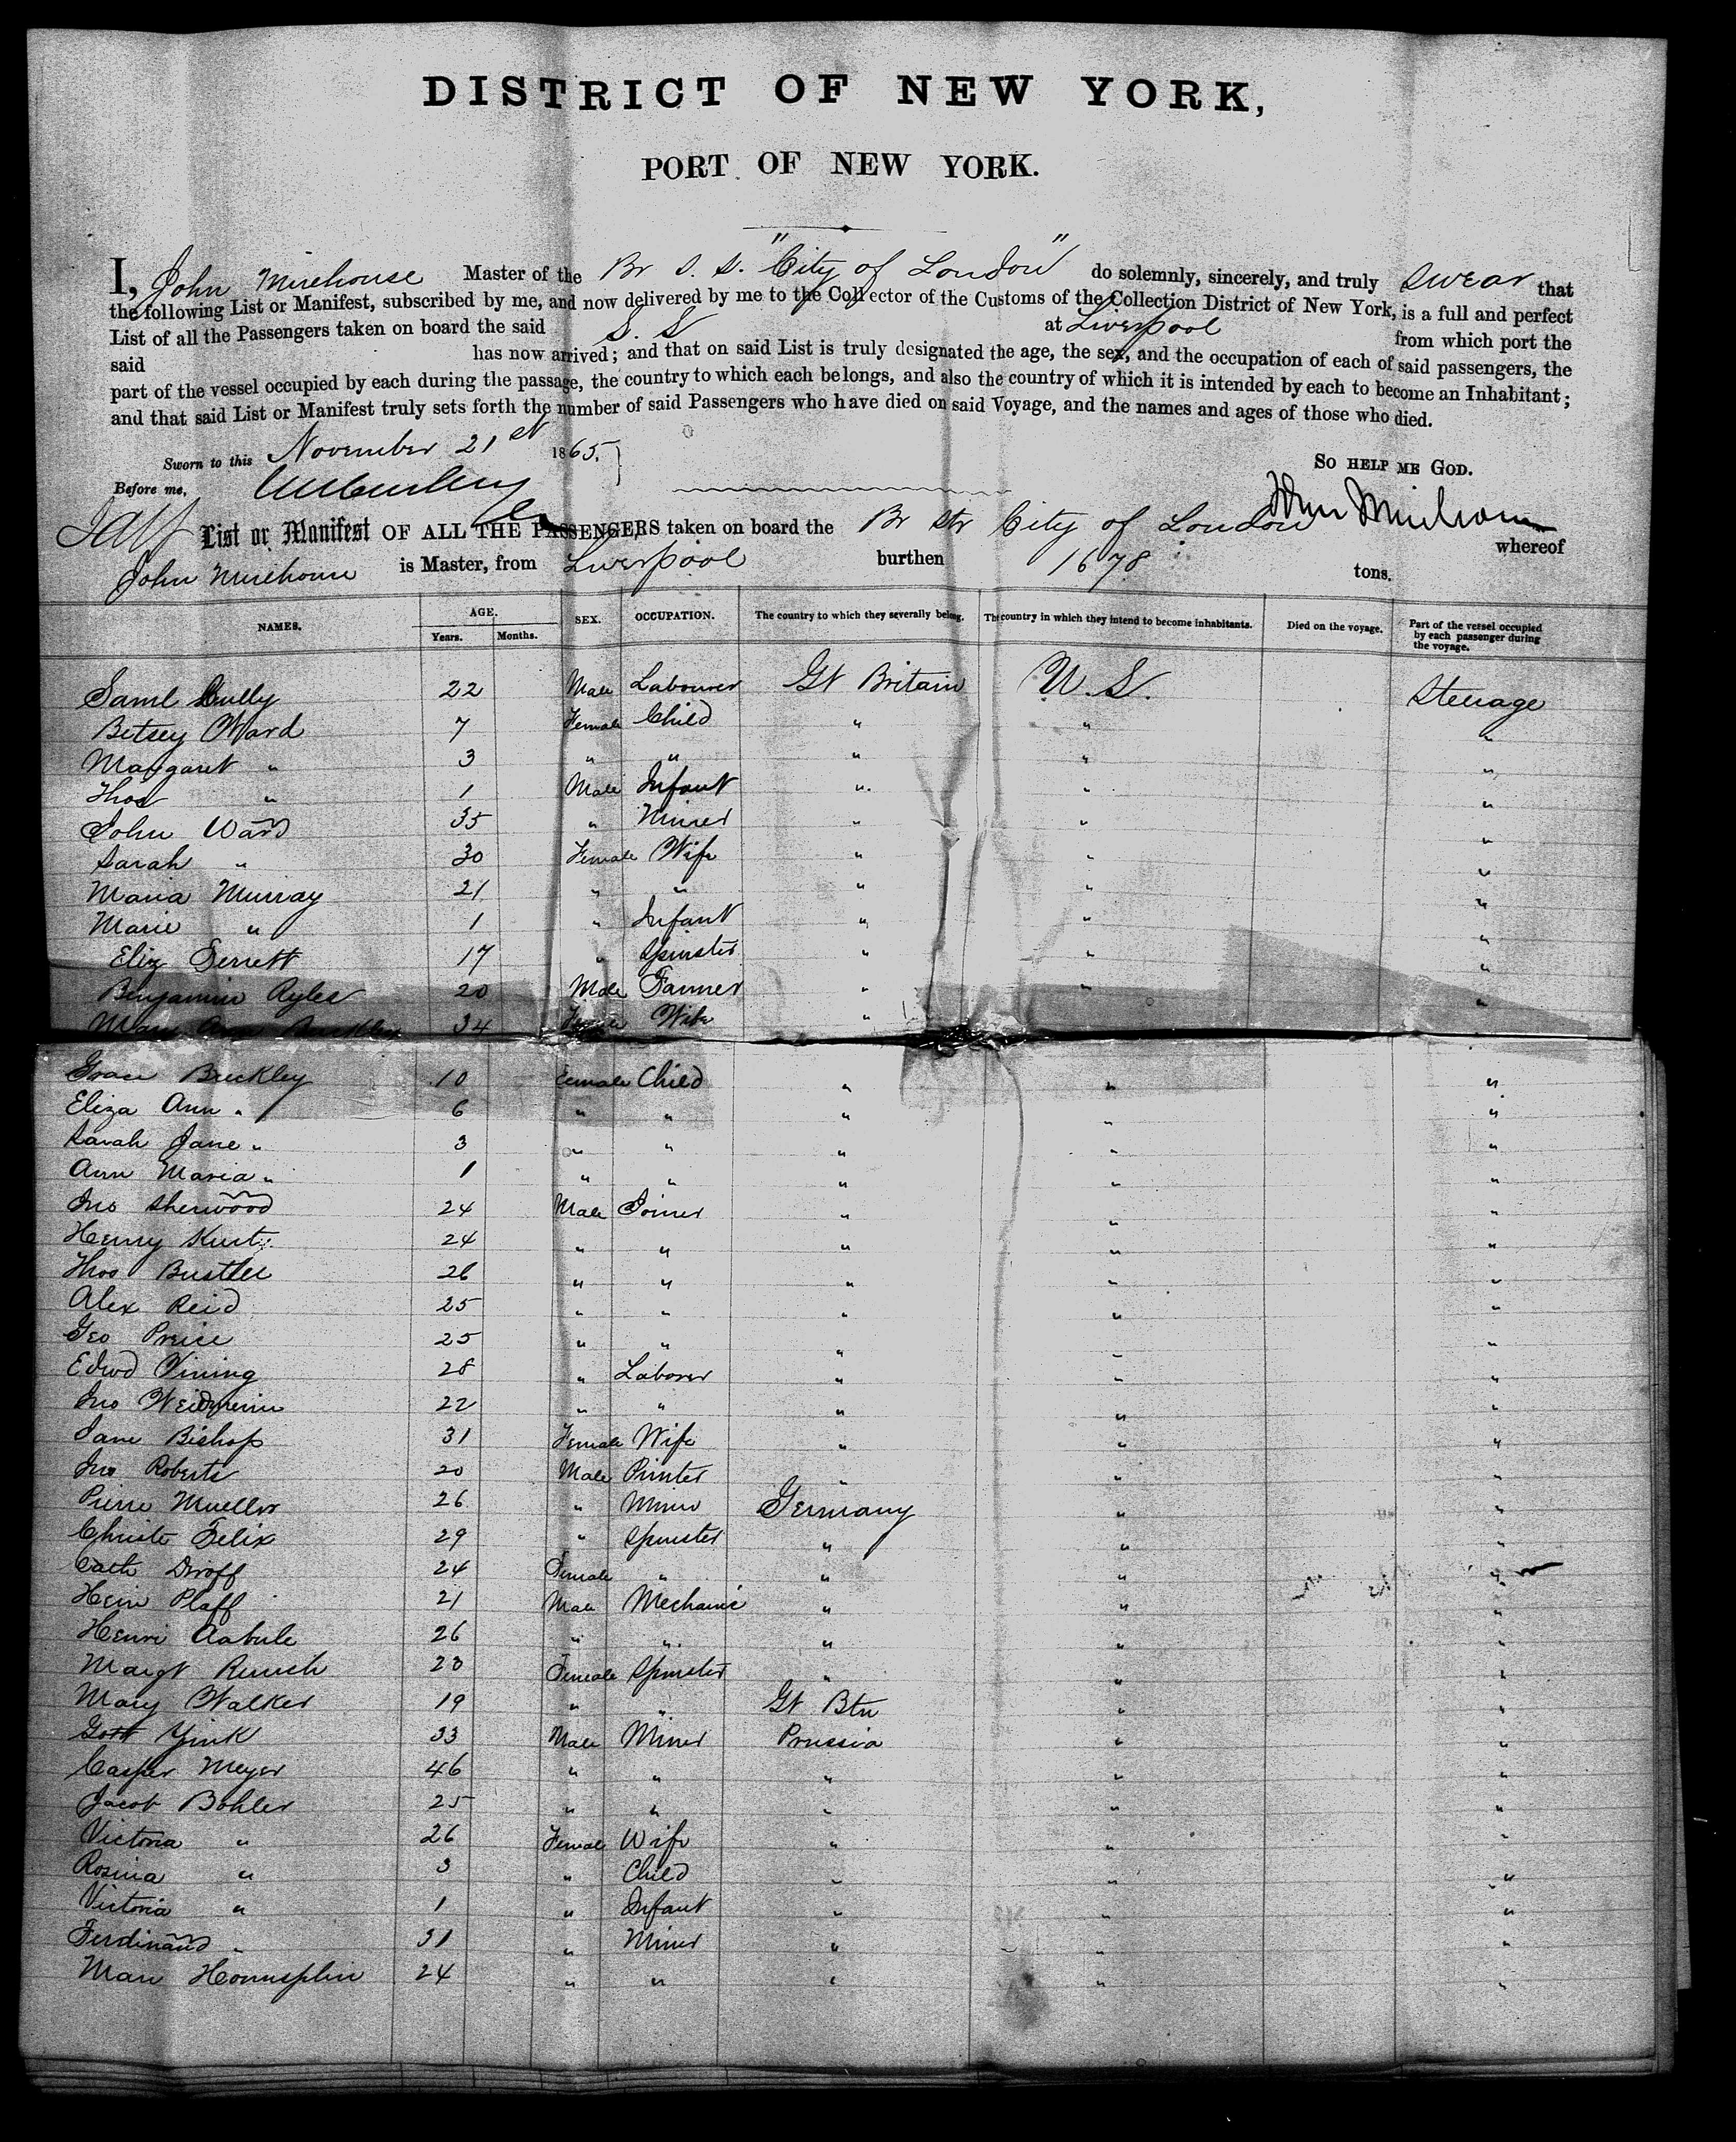 DISTRICT OF NEW YORK,
PORT OF NEW YORK.
I, John Mirehouse Master of the Br S. S. "City of London" do solemnly, sincerely, and truly swear that
the following List or Manifest, subscribed by me, and now delivered by me to the Collector of the Customs of the Collection District of New York, is a full and perfect
List of all the Passengers taken on board the said S. S at Liverpool from which port the
said has now arrived; and that on said List is truly designated the age, the sex, and the occupation of each of said passengers, the
part of the vessel occupied by each during the passage, the country to which each belongs, and also the country of which it is intended by each to become an Inhabitant;
and that said List or Manifest truly sets forth the number of said Passengers who have died on said Voyage, and the names and ages of those who died.
Sworn to this November 21st 1865.
SO HELP ME GOD.
Before me,
John Mirehouse
List or Manifest OF ALL THE PASSENGERS taken on board the Br Str City of London whereof
John Mirehouse is Master, from Liverpool burthen 1678 tons.
NAMES. AGE. Years. Months. SEX. OCCUPATION. The country to which they severally belong. The country in which they intend to become inhabitants. Died on the voyage. Part of the vessel occupied by each passenger during the voyage.
Saml 22 Male Labourer Gt Britain U.S. Steerage
Betsey Ward 7 Female Child " " "
Margaret " 3 " " " " "
Thos " 1 Male Infant " " "
John Ward 35 " Miner " " "
Sarah " 30 Female Wife " " "
Maria Murray 21 " " " " "
Marie " 1 " Infant " " "
Eliz 17 " Spinster " " "
Benjamin Ryles 20 Male Farmer " " "
Mary Ann Buckley 34 Female Wife " "
Grace Buckley 10 Female Child " " "
Eliza Ann " 6 " " " " "
Sarah Jane " 3 " " " " "
Ann Maria " 1 " " " " "
Jno Sherwood 24 Male Joiner " " "
Henry 24 " " " " "
Thos 26 " " " " "
Alex Reid 25 " " " " "
Geo Preice 25 " " " " "
Edwd Vining 28 " Laborer " " "
Jno 22 " " " " "
Jane Bishop 31 Female Wife " " "
Jno Roberts 20 Male Printer " " "
Pierre Mueller 26 " Miner Germany " "
Christe Felix 29 " Spinster " " "
Cath Droff 24 Female " " " "
Heni Plaff 21 Male Mechanic " " "
Henri 26 " " " " "
Margt 23 Female Spinster " " "
Mary Walker 19 " " Gt Btn " "
Gott Zink 33 Male Miner Prussia " "
Casper Meyer 46 " " " " "
Jacob Bohler 25 " " " " "
Victoria " 26 Female Wife " " "
Rosina " 3 " Child " " "
Victoria " 1 " Infant " " "
Ferdinand " 31 " Miner " " "
Marie 24 " " " " "